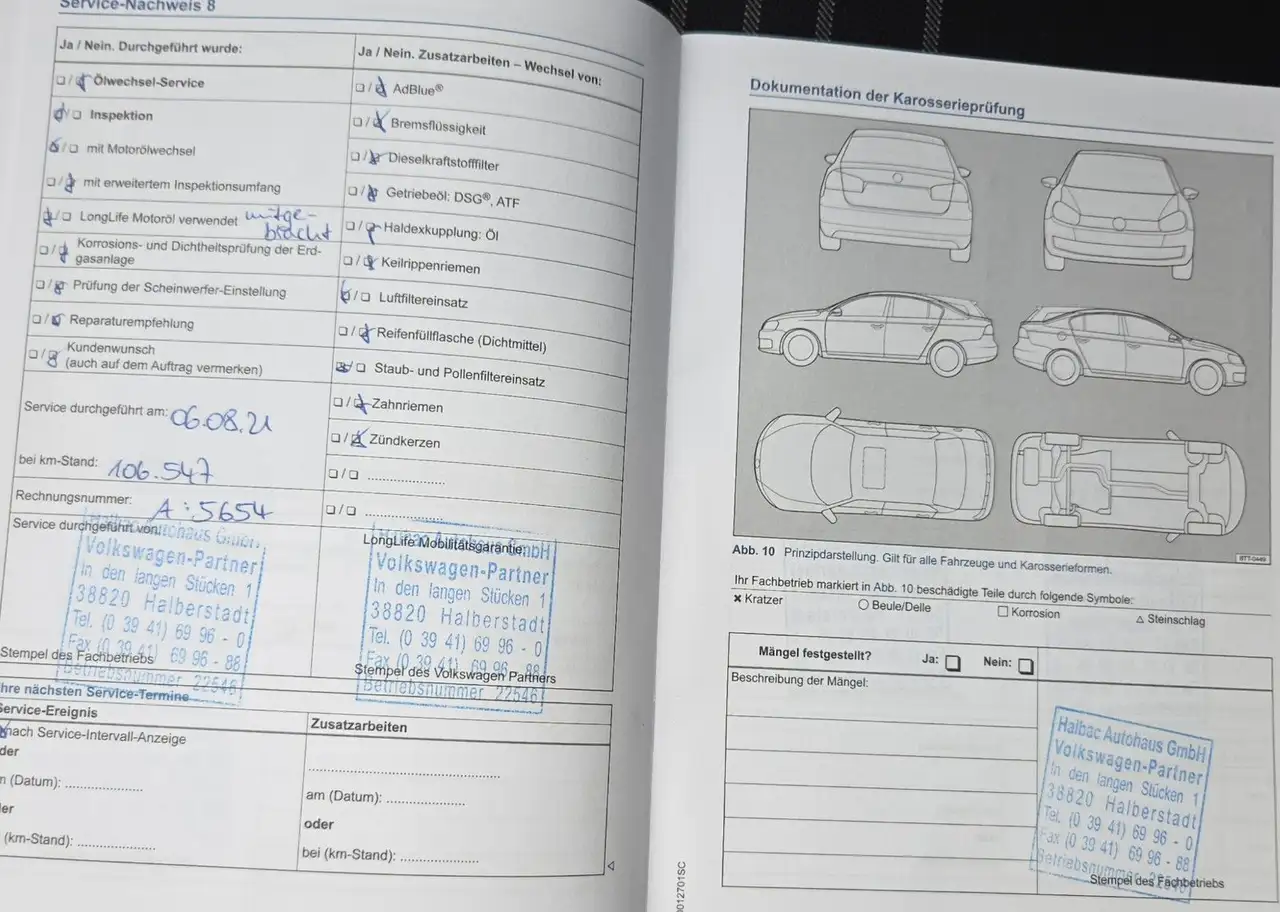 Service-Nachweis 8
Ja / Nein. Durchgeführt wurde:
❑ / ❑ Ölwechsel-Service
❑ / ❑ Inspektion
❑ / ❑ mit Motorölwechsel
❑ / ❑ mit erweitertem Inspektionsumfang
❑ / ❑ LongLife Motoröl verwendet mitge-
bracht
❑ / ❑ Korrosions- und Dichtheitsprüfung der Erd-
gasanlage
❑ / ❑ Prüfung der Scheinwerfer-Einstellung
❑ / ❑ Reparaturempfehlung
❑ / ❑ Kundenwunsch
(auch auf dem Auftrag vermerken)
Service durchgeführt am: 06.08.21
bei km-Stand: 106.547
Rechnungsnummer: A:5654
Service durchgeführt von:
Halbac Autohaus GmbH
Volkswagen-Partner
In den langen Stücken 1
38820 Halberstadt
Tel. (0 39 41) 69 96 - 0
Fax (0 39 41) 69 96 - 88
Betriebsnummer 22546
Stempel des Fachbetriebs
Ja / Nein. Zusatzarbeiten – Wechsel von:
❑ / ❑ AdBlue®
❑ / ❑ Bremsflüssigkeit
❑ / ❑ Dieselkraftstofffilter
❑ / ❑ Getriebeöl: DSG®, ATF
❑ / ❑ Haldexkupplung: Öl
❑ / ❑ Keilrippenriemen
❑ / ❑ Luftfiltereinsatz
❑ / ❑ Reifenfüllflasche (Dichtmittel)
❑ / ❑ Staub- und Pollenfiltereinsatz
❑ / ❑ Zahnriemen
❑ / ❑ Zündkerzen
❑ / ❑ ......................
❑ / ❑ ......................
LongLife Mobilitätsgarantie:
Halbac Autohaus GmbH
Volkswagen-Partner
In den langen Stücken 1
38820 Halberstadt
Tel. (0 39 41) 69 96 - 0
Fax (0 39 41) 69 96 - 88
Betriebsnummer 22546
Stempel des Volkswagen Partners
hre nächsten Service-Termine
Service-Ereignis
nach Service-Intervall-Anzeige
der
n (Datum): ......................
er
(km-Stand): ......................
Zusatzarbeiten
......................................................
am (Datum): ......................
oder
bei (km-Stand): ......................
012701SC
Dokumentation der Karosserieprüfung
BTT-0449
Abb. 10 Prinzipdarstellung. Gilt für alle Fahrzeuge und Karosserieformen.
Ihr Fachbetrieb markiert in Abb. 10 beschädigte Teile durch folgende Symbole:
✕ Kratzer ○ Beule/Delle □ Korrosion △ Steinschlag
Mängel festgestellt? Ja: ❑ Nein: ❑
Beschreibung der Mängel:
Halbac Autohaus GmbH
Volkswagen-Partner
In den langen Stücken 1
38820 Halberstadt
Tel. (0 39 41) 69 96 - 0
Fax (0 39 41) 69 96 - 88
Betriebsnummer 22546
Stempel des Fachbetriebs